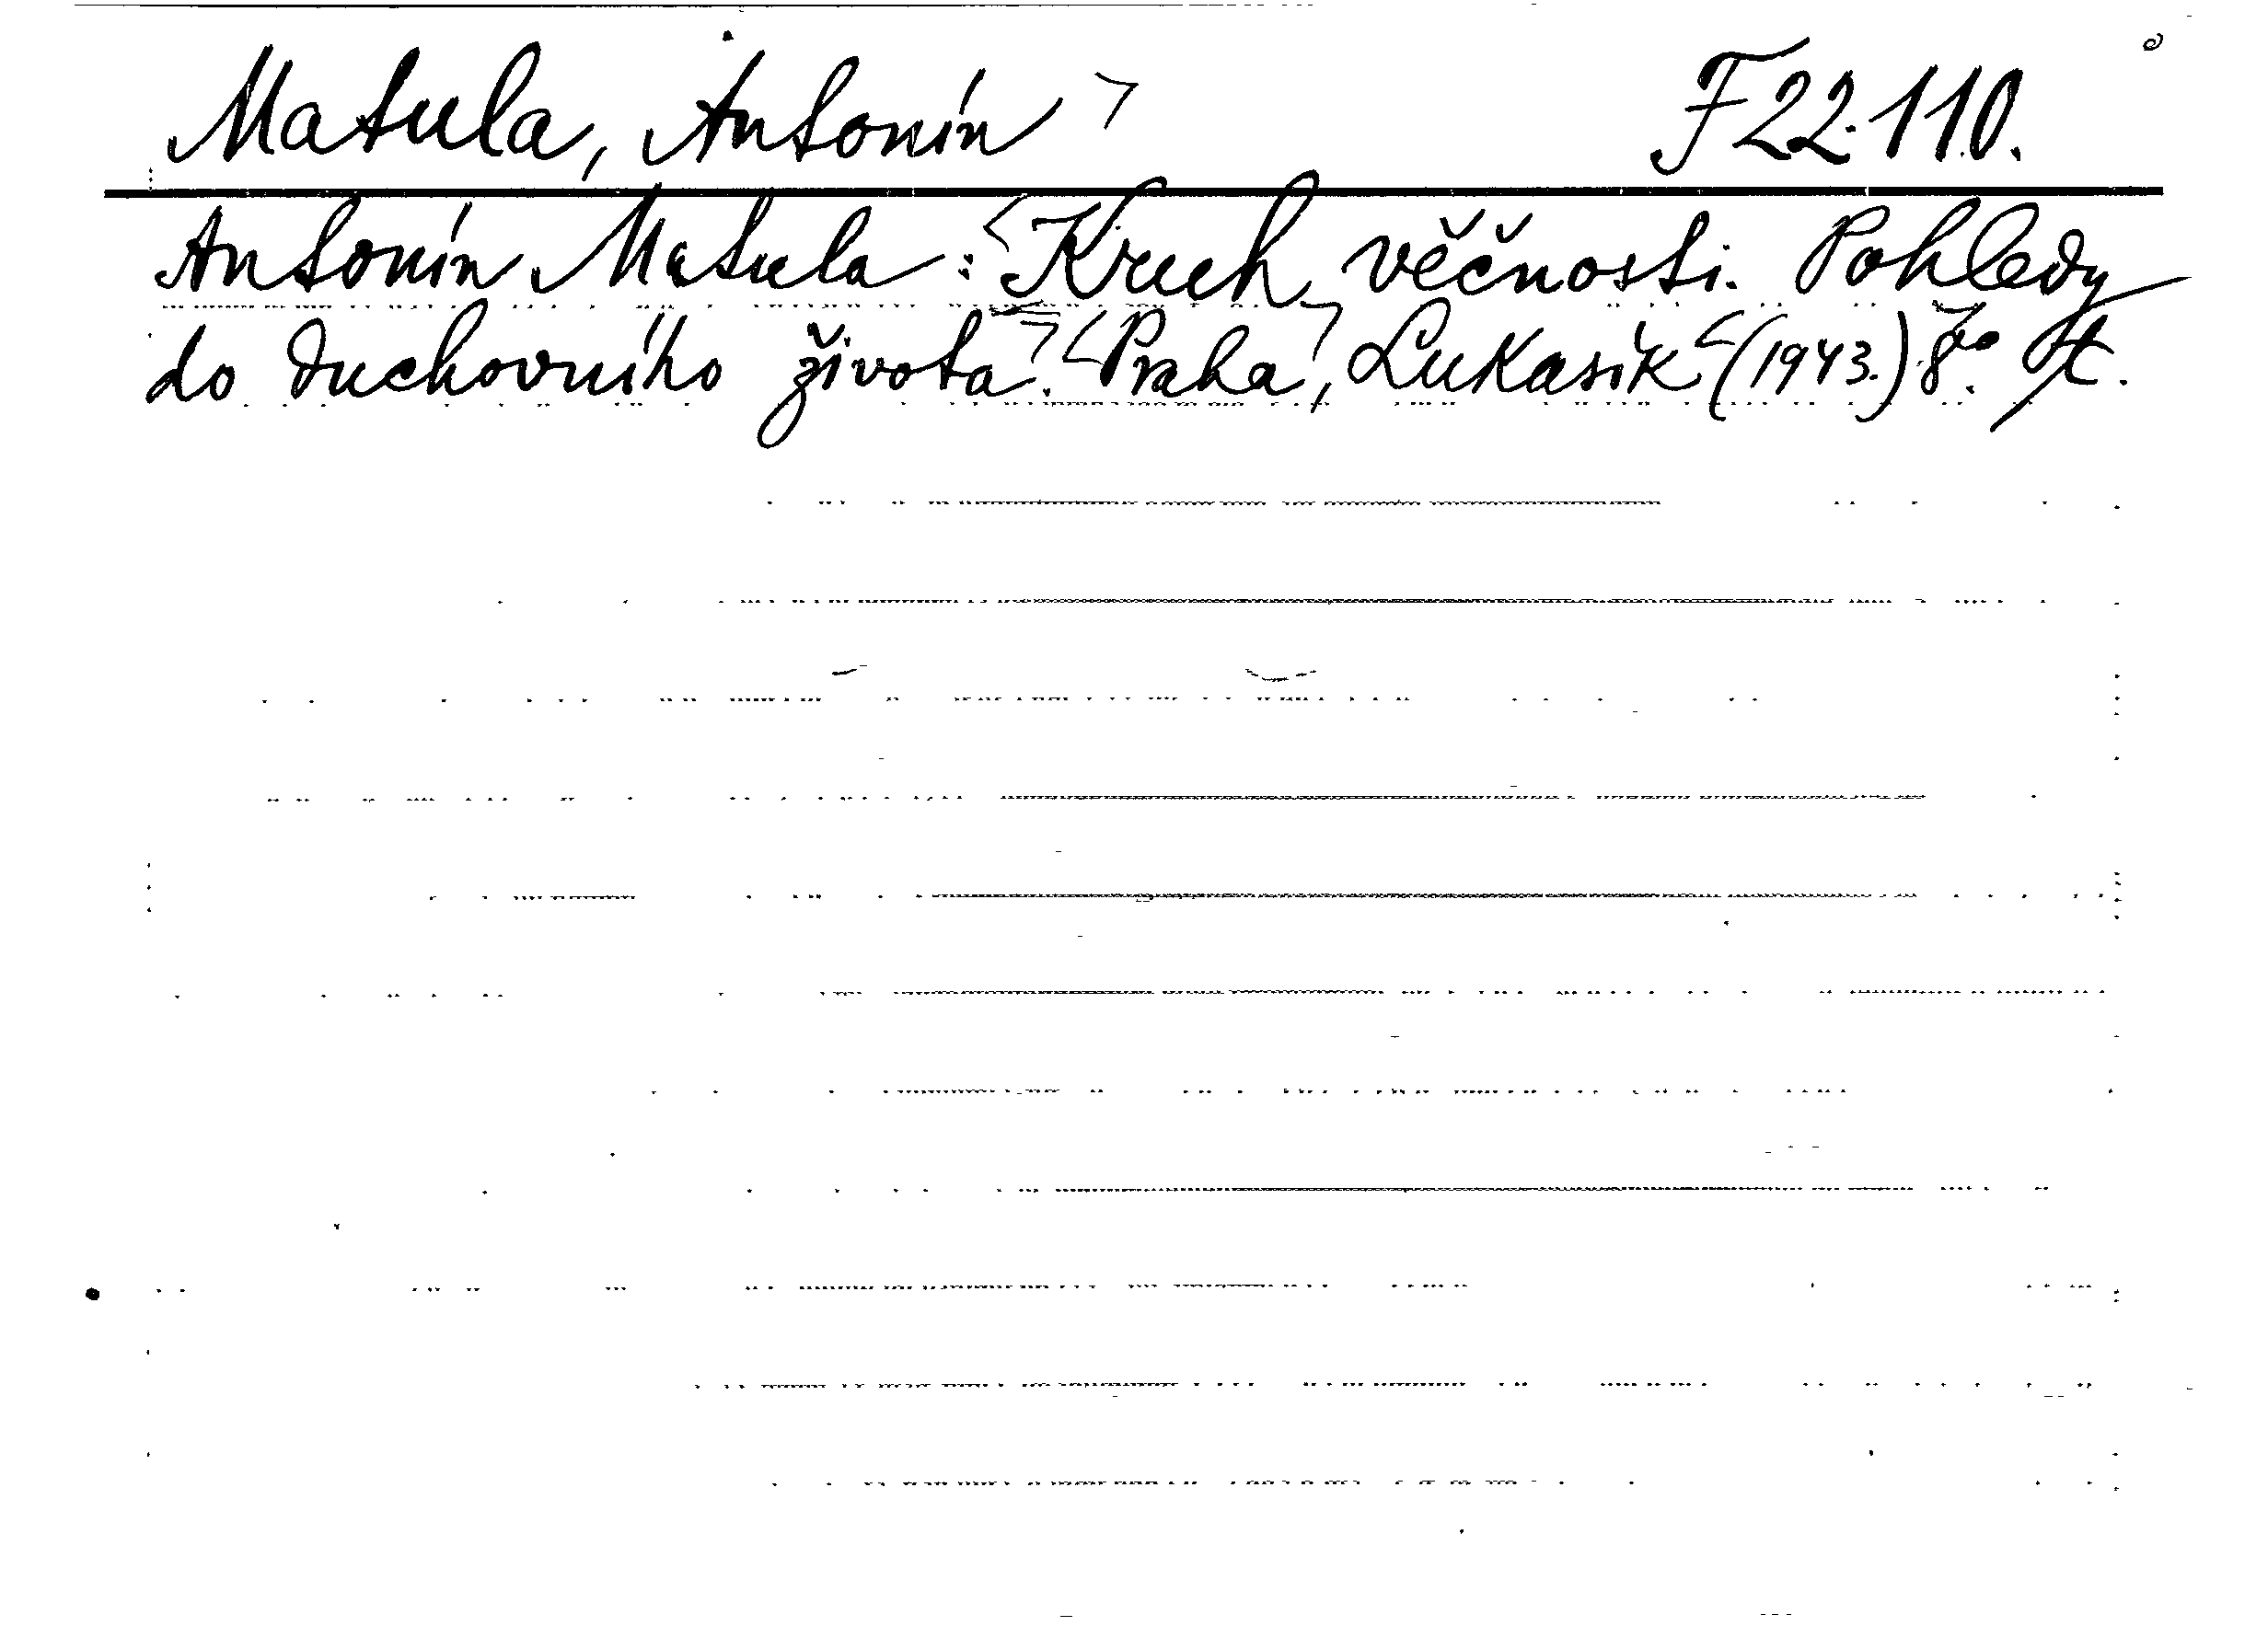 Matula, Antonín F 22.110.
Antonín Matula: Kruh věčnosti. Pohledy
do duchovního života. Praha, Lukasík (1943.) 8°.